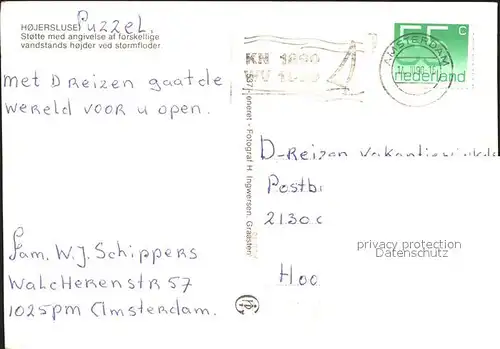 HØJERSLUSE Puzzel.
Støtte med angivelse af forskellige
vandstands højder ved stormfloder.
met D Reizen gaat de
wereld voor u open.
Fam. W.J. Schippers
Walcherenstr 57
1025pm Amsterdam.
KN 1890
1990
AMSTERDAM
55 c
nederland
Fotograf H. Ingwersen, Gråsten
D-Reizen vakantie
Postb
2130
Hoo
privacy protection
Datenschutz